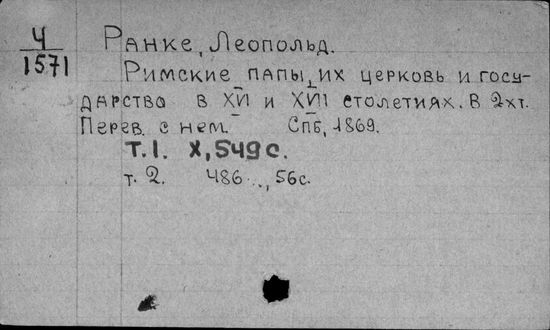 Ч
1571
Ранке, Леопольд.
Римские папы, их церковь и госу-
дарство в XVI и XVII столетиях. В 2хт.
Перев. с нем. Спб, 1869.
Т.1. X, 549 с.
т. 2. 486..., 56с.